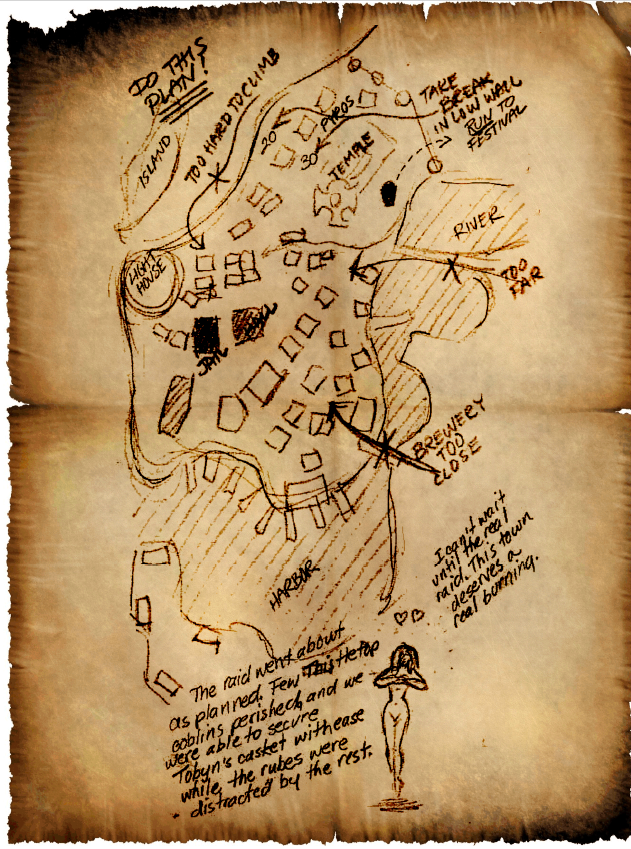 DO THIS
PLAN!
ISLAND
TOO HARD TO CLIMB
20
PYROS
30
TEMPLE
TAKE
BREAK
IN LOW WALL
RUN TO
FESTIVAL
RIVER
TOO
FAR
LIGHT
HOUSE
JAIL
BREWERY
TOO
CLOSE
HARBOR
I can't wait
until the real
raid. This town
deserves a
real burning.
The raid went about
as planned. Few Thistletop
goblins perished, and we
were able to secure
Tobyn's casket with ease
while the rubes were
distracted by the rest.